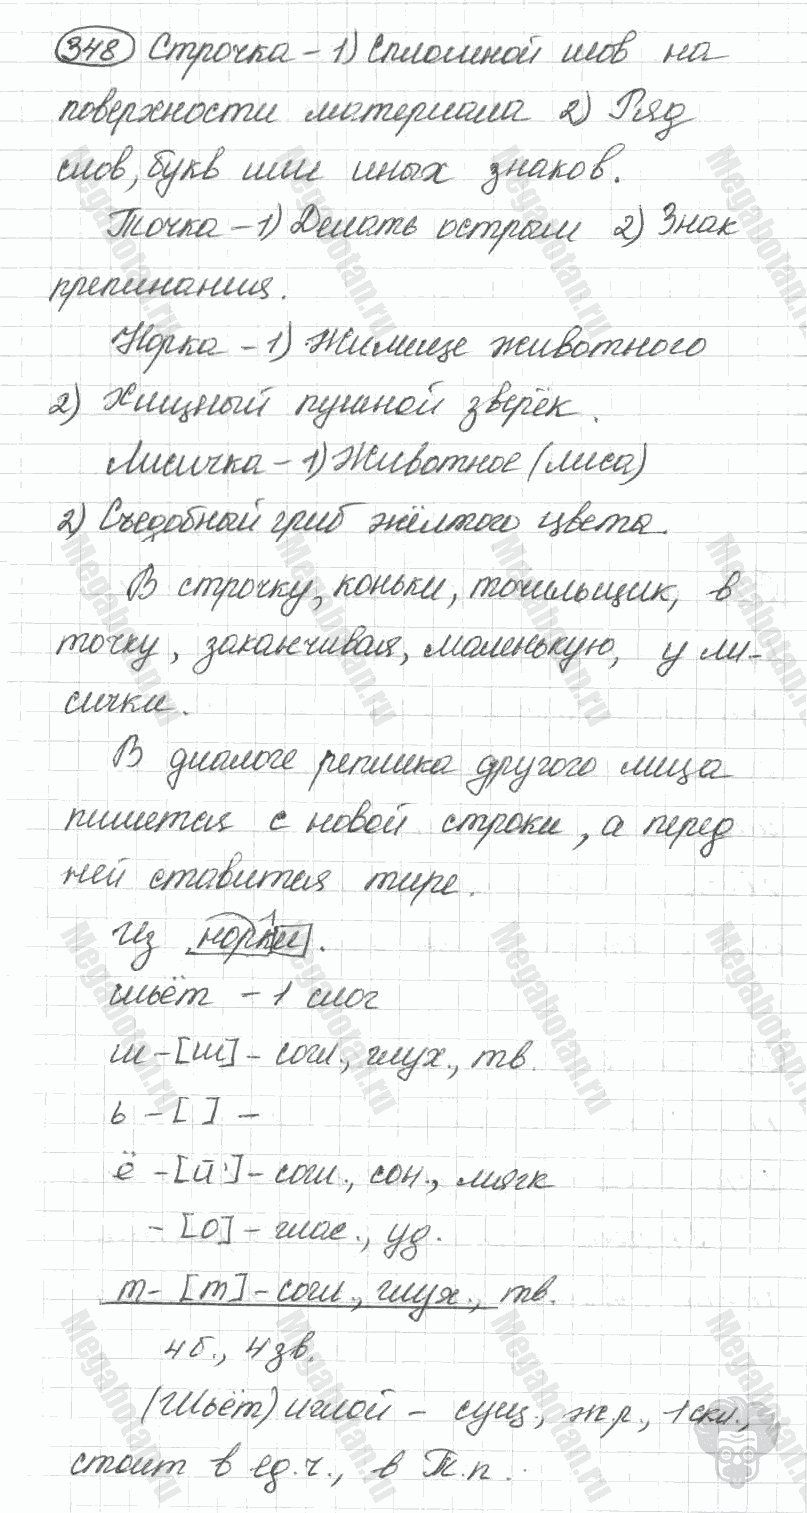 348 Строчка – 1) Сплошной шов на
поверхности материала 2) Ряд
слов, букв или иных знаков.
Точка – 1) Делать острым 2) Знак
препинания.
Норка – 1) Жилище животного
2) Хищный пушной зверёк.
Лисичка – 1) Животное (лиса)
2) Съедобный гриб жёлтого цвета.
В строчку, коньки, точильщик, в
точку, заканчивая, маленькую, у ли-
сички.
В диалоге реплика другого лица
пишется с новой строки, а перед
ней ставится тире.
Из норки.
шьёт – 1 слог
ш – [ш] – согл., глух., тв.
ь – [ ] –
ё – [й'] – согл., сон., мягк
– [о] – глас., уд.
т – [т] – согл., глух., тв.
4 б., 4 зв.
(Шьёт) иглой – сущ., ж.р., 1 скл.,
стоит в ед.ч., в Т.п.
Megabotan.ru